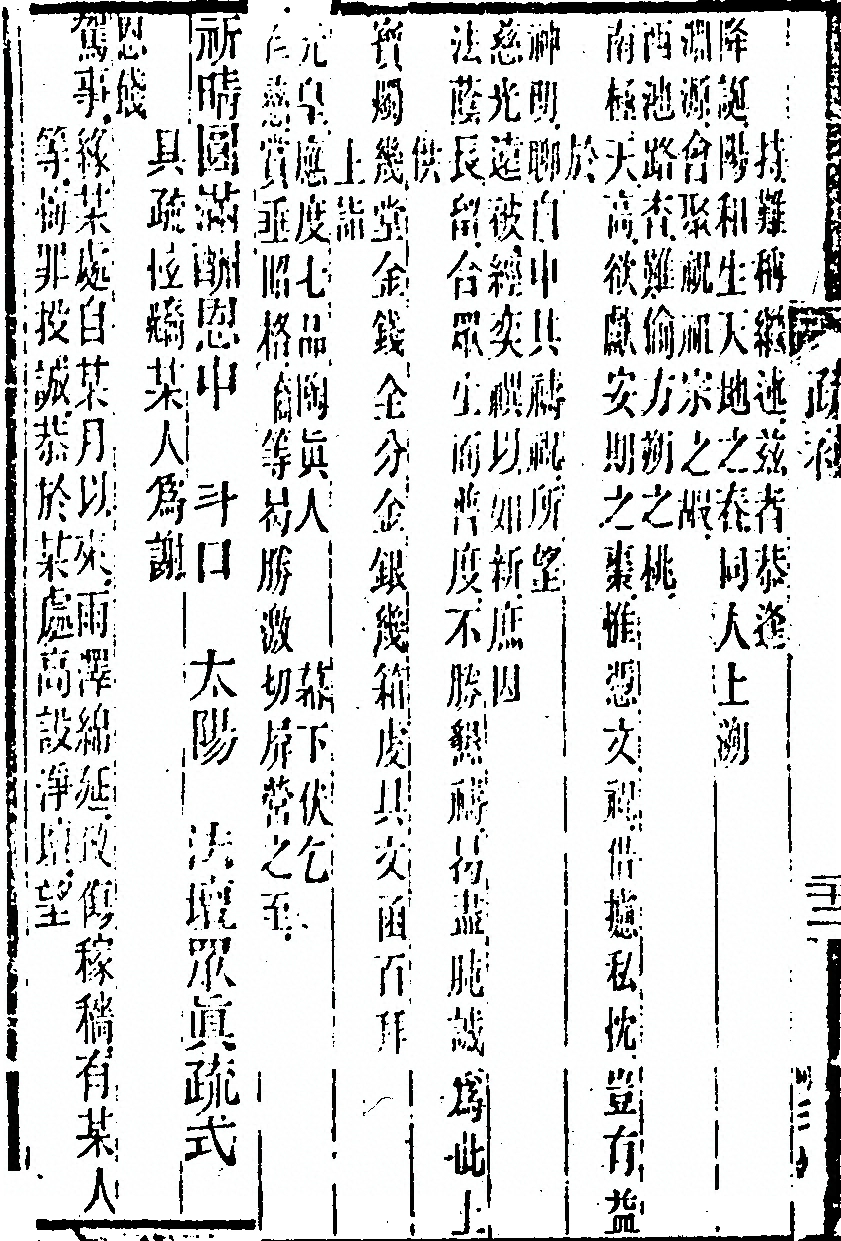 持難稱繼述茲者恭逢
降誕陽和生天地之春同人上溯
淵源會聚祝祖宗之嘏
西池路杳難偷方朔之桃
南極天高欲獻安期之棗惟慫文祝借攄私忱豈有益
於
神明聊自申其禱祝所望
慈光遠被經奕禩以如新庶因
法蔭長留合眾生而普度不勝懇禱曷盡肫誠為此上
供
寶燭幾堂金錢全分金銀幾箱虔具文函百拜
上詣
元皇應度七品陶真人 幕下伏乞
慈賞垂昭格 等曷勝激切屏營之至
祈晴圓滿酬恩申 斗口 太陽 法壇眾眞疏式
具疏 某人為謝
恩餞
駕事緣某處自某月以來雨澤綿延致傷稼穡有某人
等悔罪投誠恭於某處高設淨壇望
疏
二十二